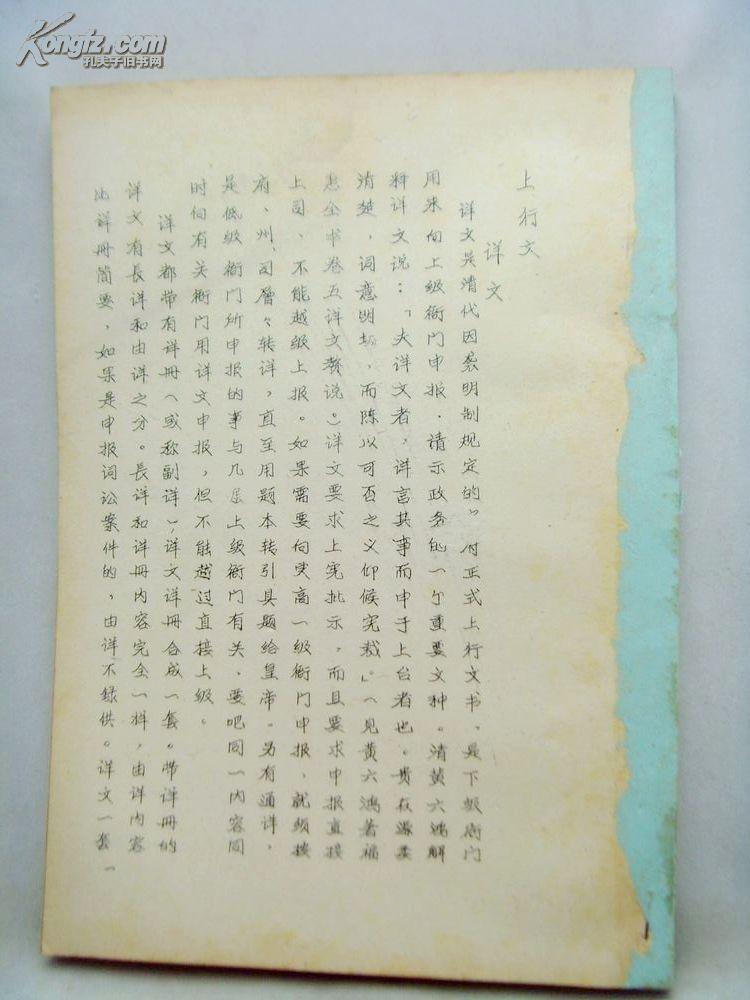 Kongfz.com
孔夫子旧书网
上行文
详文
详文是清代因袭明制规定的 对正式上行文书、是下级衙门
用来向上级衙门申报、请示政务的一个重要文种。清黄六鸿解
释详文说：“夫详文者，详言其事而申于上台者也。贵在源委
清楚，词意明切，而陈以可否之义仰候宪裁。”（见黄六鸿著福
惠全书卷五详文赘说。）详文要求上宪批示，而且要求申报直接
上司、不能越级上报。如果需要向更高一级衙门申报、就须按
府、州、司層々转详，直至用题本转引具题给皇帝。另有通详，
是低级衙门所申报的事与几层上级衙门有关、要吧同一内容同
时向有关衙门用详文申报，但不能越过直接上级。
详文都带有详冊（或称副详）、详文详冊合成一套。带详冊的
详文有長详和由详之分。長详和详冊内容完全一样，由详内容
比详冊简要，如果是申报词讼案件的，由详不録供。详文一套一